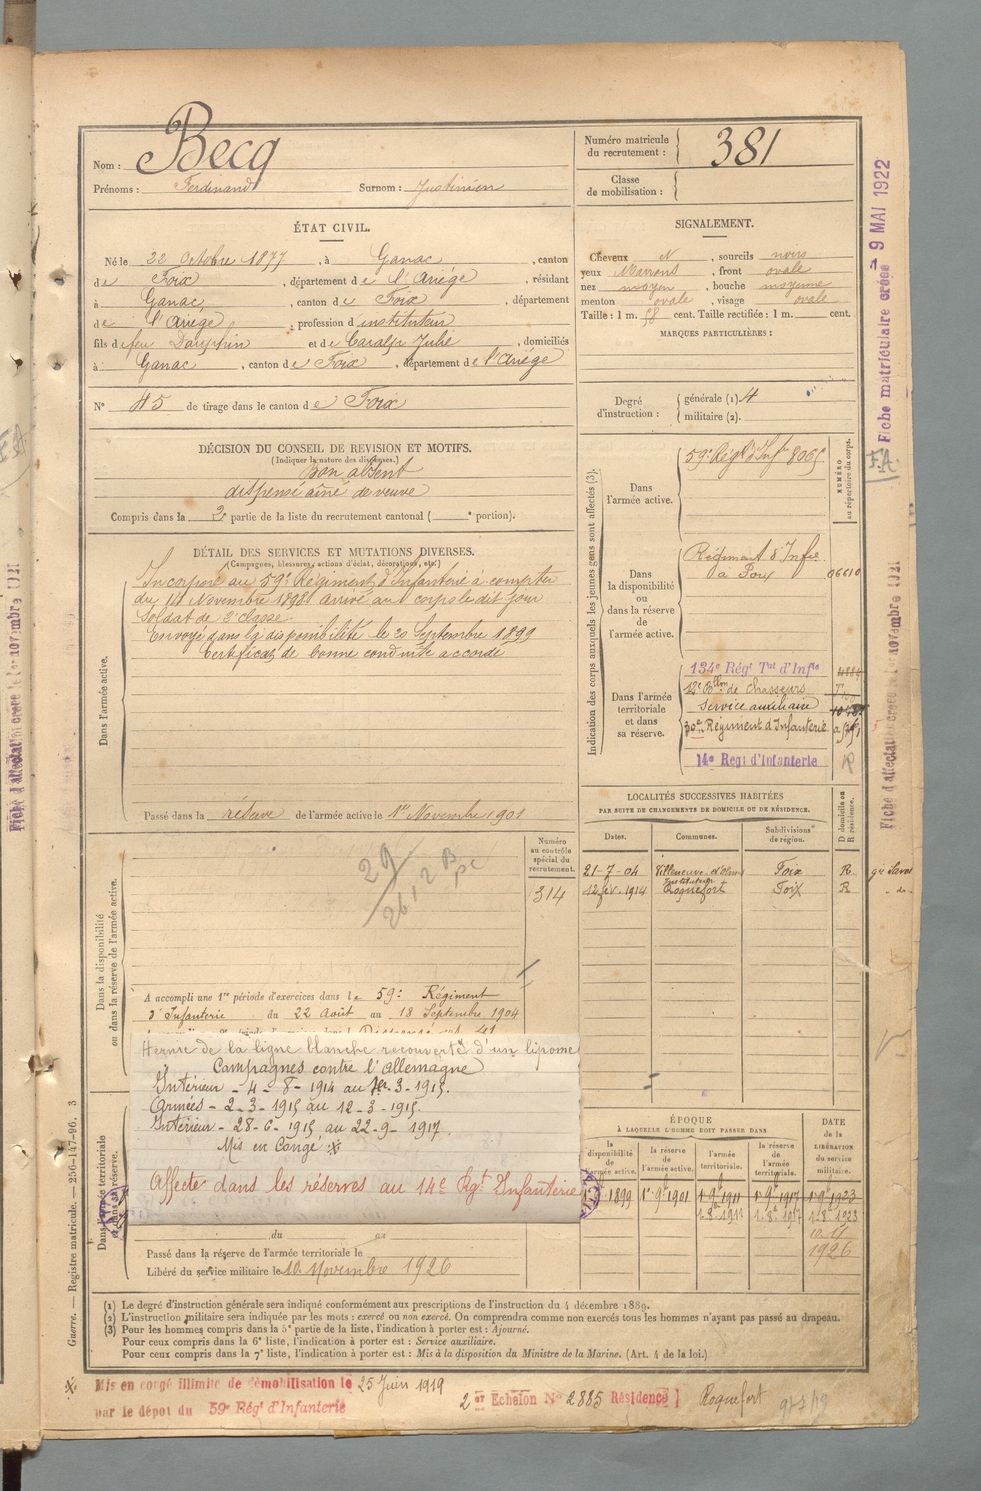 Nom : Becq
Prénoms : Ferdinand Surnom : Justinien
Numéro matricule du recrutement : 381
Classe de mobilisation :
ÉTAT CIVIL.
Né le 22 Octobre 1877, à Ganac, canton
de Foix, département de l'Ariége, résidant
à Ganac, canton de Foix, département
de l'Ariége, profession d'instituteur
fils de feu Dauphin et de Caralp Julie, domiciliés
à Ganac, canton de Foix, département de l'Ariége
N° 45 de tirage dans le canton de Foix
SIGNALEMENT.
Cheveux N, sourcils noirs
yeux Marrons, front ovale
nez moyen, bouche moyenne
menton ovale, visage ovale
Taille : 1 m. 58 cent. Taille rectifiée : 1 m. cent.
MARQUES PARTICULIÈRES :
Degré d'instruction : générale (1) 4
militaire (2).
DÉCISION DU CONSEIL DE REVISION ET MOTIFS.
(Indiquer la nature des dispenses.)
Bon absent
dispensé aîné de veuve
Compris dans la 2e partie de la liste du recrutement cantonal ( e portion).
DÉTAIL DES SERVICES ET MUTATIONS DIVERSES.
(Campagnes, blessures, actions d'éclat, décorations, etc.)
Dans l'armée active.
Incorporé au 59e Régiment d'Infanterie à compter
du 14 Novembre 1898 arrivé au corps le dit jour
Soldat de 2e classe.
Envoyé dans la disponibilité le 20 Septembre 1899
Certificat de bonne conduite accordé
Passé dans la réserve de l'armée active le 1er Novembre 1901
Indication des corps auxquels les jeunes gens sont affectés (3).
NUMÉRO au répertoire du corps.
Dans l'armée active.
59e Régt d'Infie 8065
Dans la disponibilité ou dans la réserve de l'armée active.
Régiment d'Infie
à Foix 06610
Dans l'armée territoriale et dans sa réserve.
134e Régt Tal d'Infie
12e Bllon de Chasseurs
Service auxiliaire
30e Régiment d'Infanterie
14e Régt d'Infanterie
LOCALITÉS SUCCESSIVES HABITÉES
PAR SUITE DE CHANGEMENTS DE DOMICILE OU DE RÉSIDENCE.
Dates. Communes. Subdivisions de région. D domicile ou R résidence.
21-7-04 Villeneuve-d'Olmes Foix R. gie Lavel
Instituteur
12 fév. 1914 Roquefort Foix R - do -
Dans la disponibilité ou dans la réserve de l'armée active.
Numéro au contrôle spécial du recrutement.
314
29
2612 B
A accompli une 1re période d'exercices dans le 59e Régiment
d'Infanterie du 22 Août au 18 Septembre 1904
Hernie de la ligne blanche recouverte d'un lipome
Campagnes contre l'Allemagne
Intérieur - 4 - 8 - 1914 au 1er - 3 - 1915.
Armées - 2 - 3 - 1915 au 12 - 3 - 1915.
Intérieur - 28 - 6 - 1915 au 22 - 9 - 1917.
Mis en Congé
Affecté dans les réserves au 14e Rgt d'Infanterie
Dans l'armée territoriale et dans sa réserve.
du au
Passé dans la réserve de l'armée territoriale le
Libéré du service militaire le 10 Novembre 1926
ÉPOQUE
A LAQUELLE L'HOMME DOIT PASSER DANS
la disponibilité de l'armée active. la réserve de l'armée active. l'armée territoriale. la réserve de l'armée territoriale. DATE de la LIBÉRATION du service militaire.
1899 1r 9e 1901 1r 9e 1911 1r 9e 1917 1r 9e 1923
1-8e 1911 1-8e 1917 1-8e 1923
1926
(1) Le degré d'instruction générale sera indiqué conformément aux prescriptions de l'instruction du 4 décembre 1889.
(2) L'instruction militaire sera indiquée par les mots : exercé ou non exercé. On comprendra comme non exercés tous les hommes n'ayant pas passé au drapeau.
(3) Pour les hommes compris dans la 5e partie de la liste, l'indication à porter est : Ajourné.
Pour ceux compris dans la 6e liste, l'indication à porter est : Service auxiliaire.
Pour ceux compris dans la 7e liste, l'indication à porter est : Mis à la disposition du Ministre de la Marine. (Art. 4 de la loi.)
Mis en congé illimité de démobilisation le 25 Juin 1919
par le dépôt du 59e Régt d'Infanterie
2er Echelon N° 2885 Résidence Roquefort
Guerre. — Registre matricule. — 256-147-96. 3
Fiche matriculaire créée 9 MAI 1922
F.A.
Fiche d'affectation créée le 1er novembre 1921
Fiche d'affectation créée le 1er novembre 1921